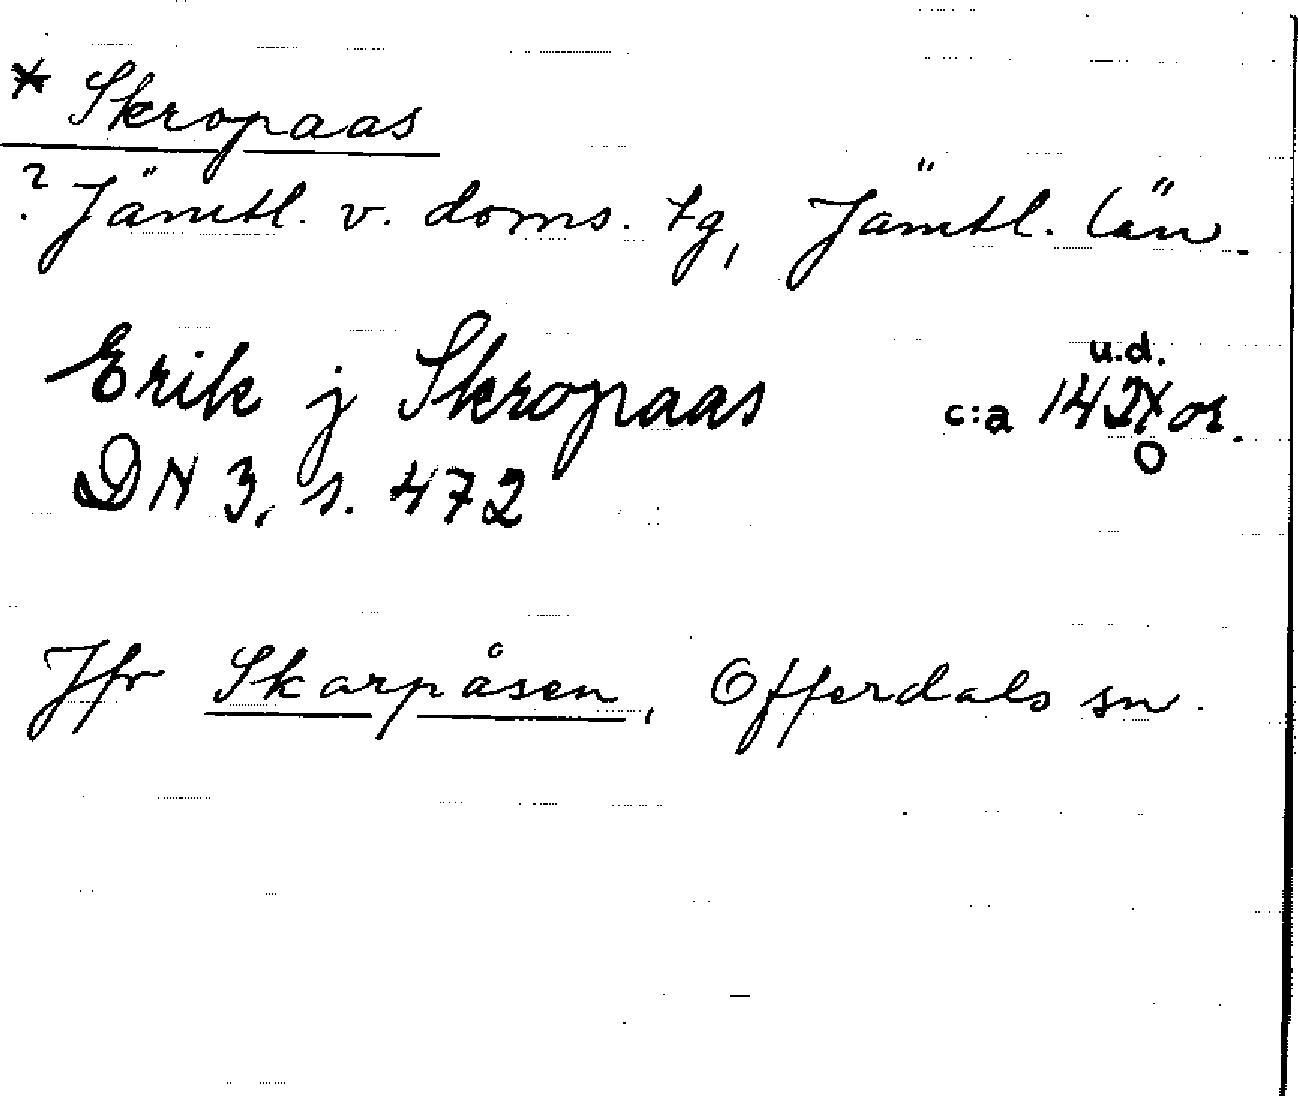 * Skropaas
? Jämtl. v. doms. tg, Jämtl. län.
u.d.
Erik j Skropaas c:a 1420 or.
DN 3, s. 472
Jfr Skarpåsen, Offerdals sn.